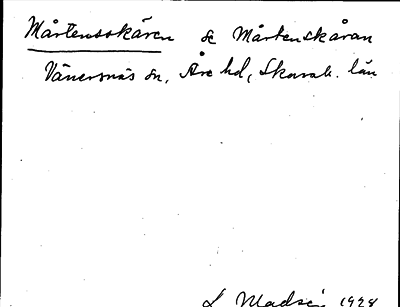 Mårtensskären se Mårtenskåran
Vänersnäs sn, Åse hd, Skarab. län
L Madsén 1928